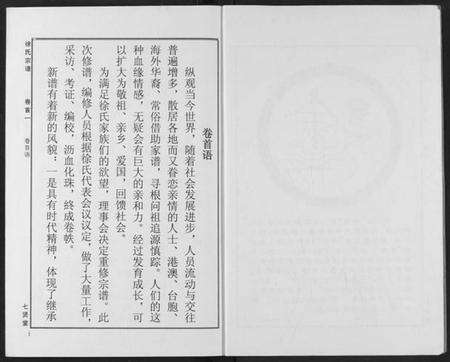 卷首语
纵观当今世界，随着社会发展进步，人员流动与交往
普遍增多，散居各地而又眷恋亲情的人士、港澳、台胞、
海外华裔、常俗借助家谱，寻根问祖追源慎踪。人们的这
种血缘情感，无疑会有巨大的亲和力。经过发育成长，可
以扩大为敬祖、亲乡、爱国，回馈社会。
为满足徐氏家族们的欲望，理事会决定重修宗谱。此
次修谱，编修人员根据徐氏代表会议议定，做了大量工作，
采访、考证、编校，沥血化珠，终成卷帙。
新谱有着新的风貌：一是具有时代精神，体现了继承
徐氏宗谱
卷首一
卷首语
七贤堂